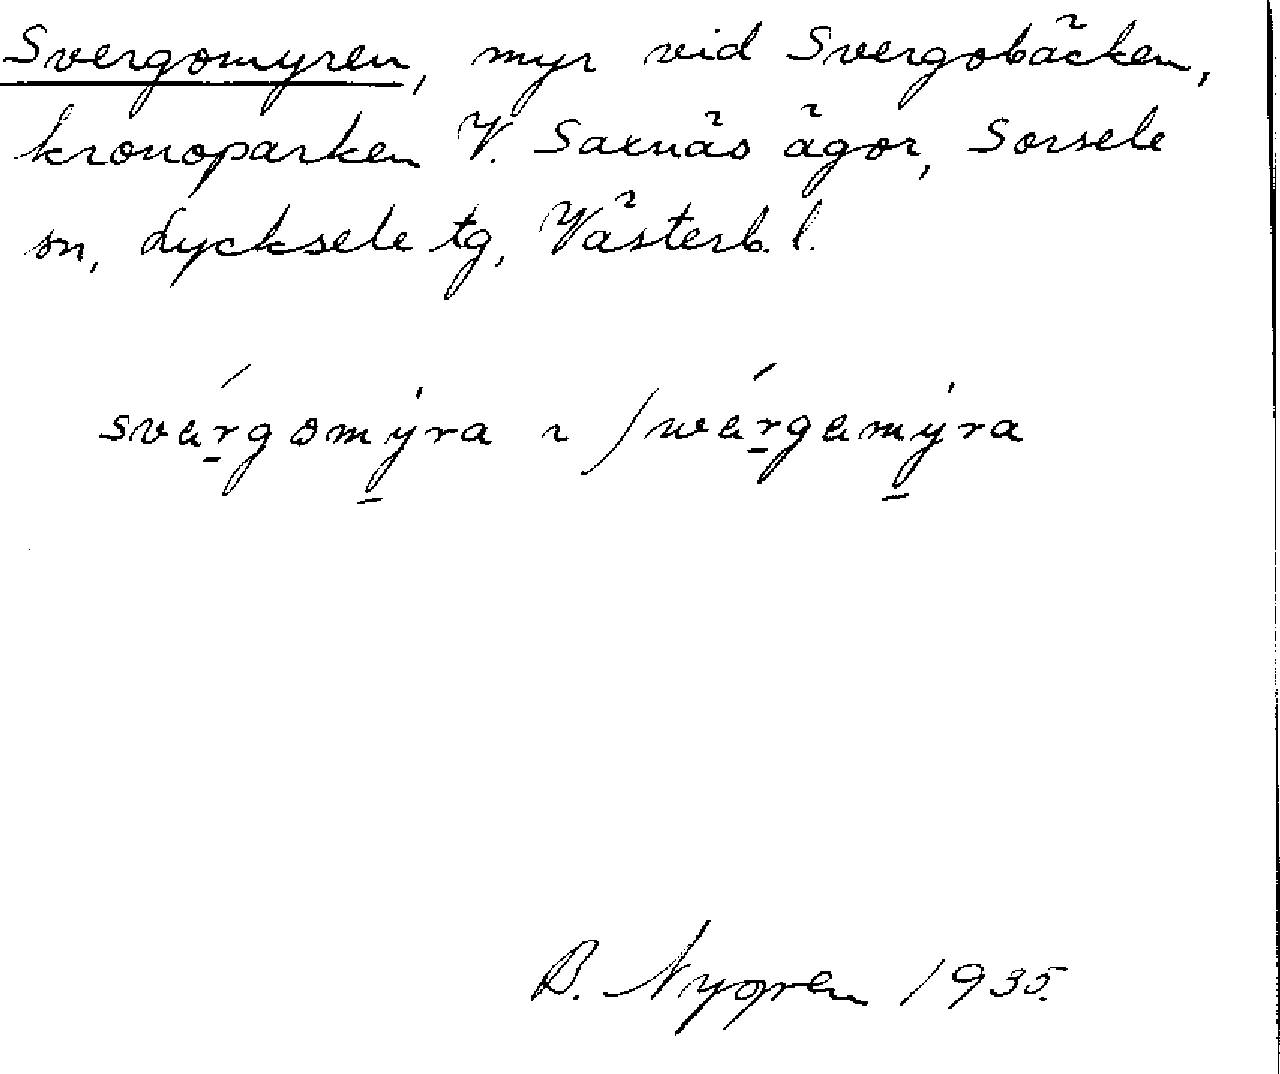 Svergomyren, myr vid Svergobäcken,
kronoparken V. Saxnäs ägor, Sorsele
sn, Lycksele tg, Västerb. l.
svärgomýra ~ ʃwärgamýra
B. Nygren 1935.